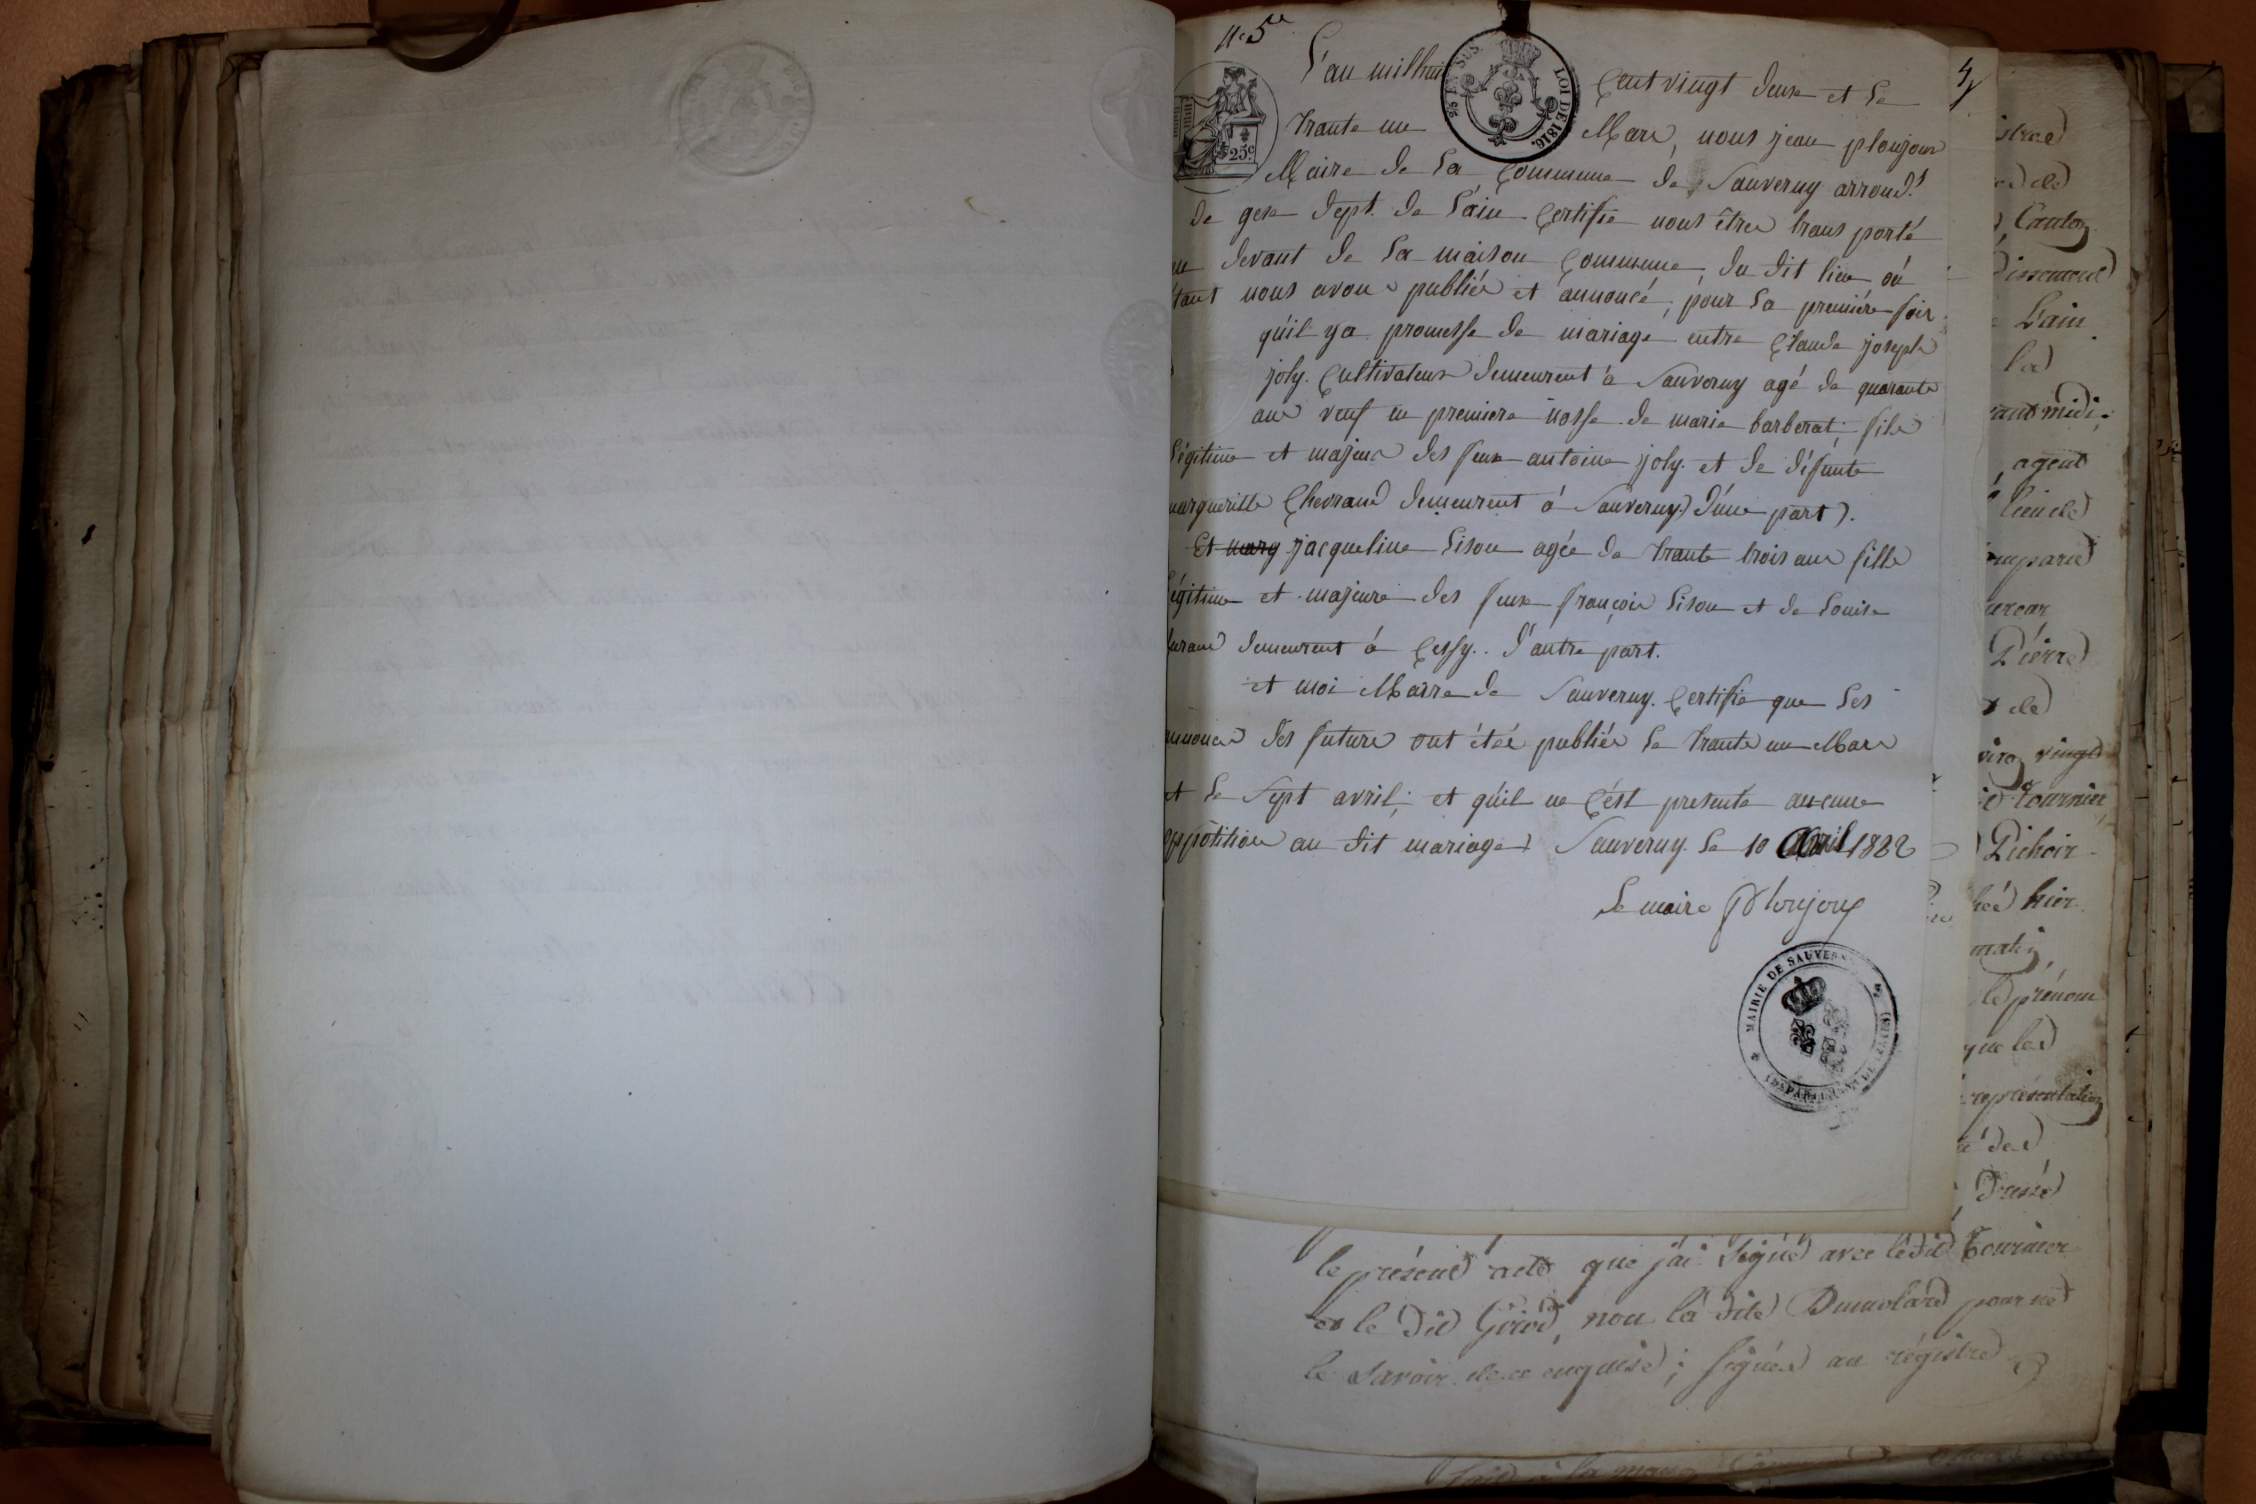 N° 5
L'an mil huit cent vingt deux et le
trante un Mars, nous jean ploujoux
Maire de la Commune de Sauverny arrond.t
de gex dept. de l'ain Certifie nous être trans porté
au devant de la maison Commune, du dit lieu où
étant nous avons publiée et annoncé, pour la première fois
qu'il y a promesse de mariage entre Claude joseph
joly. Cultivateur demeurent à Sauverny agé de quarante
ans veuf en premiere nosse de marie barberat; fils
légitime et majeur des feux antoine joly. et de défunte
margueritte Chevrand demeurent à Sauverny) d'une part).
Et marg jacqueline lison agée de trante trois ans fille
légitime et majeure des feux françois lison et de louise
durand demeurent à Cessy.. d'autre part.
et moi Marre de Sauverny. Certifie que les
annonces des futurs ont étéé publiée le trante un Mars
et le Sept avril; et qu'il ne C'est presenté aucune
oppôtition au dit mariage) Sauverny. le 10 Avril 1822
le maire Ploujoux
25 EN SUS.
LOI DE 1816.
25.c
MAIRIE DE SAUVERNY
DEPARTEMENT DE L'AIN
Canton
L'ain
la
avant midi;
agent
lieu de
Pierre
de
vingt
Tournier
Pichoir
hier
matin
le prénom
que les
représentation
des
Dressé
le présent acte que j'ai Signé avec le dit Tournier
et le dit Girod, non la dite Dumolard pour ne
le Savoir de ce enquise; Signés au régistre